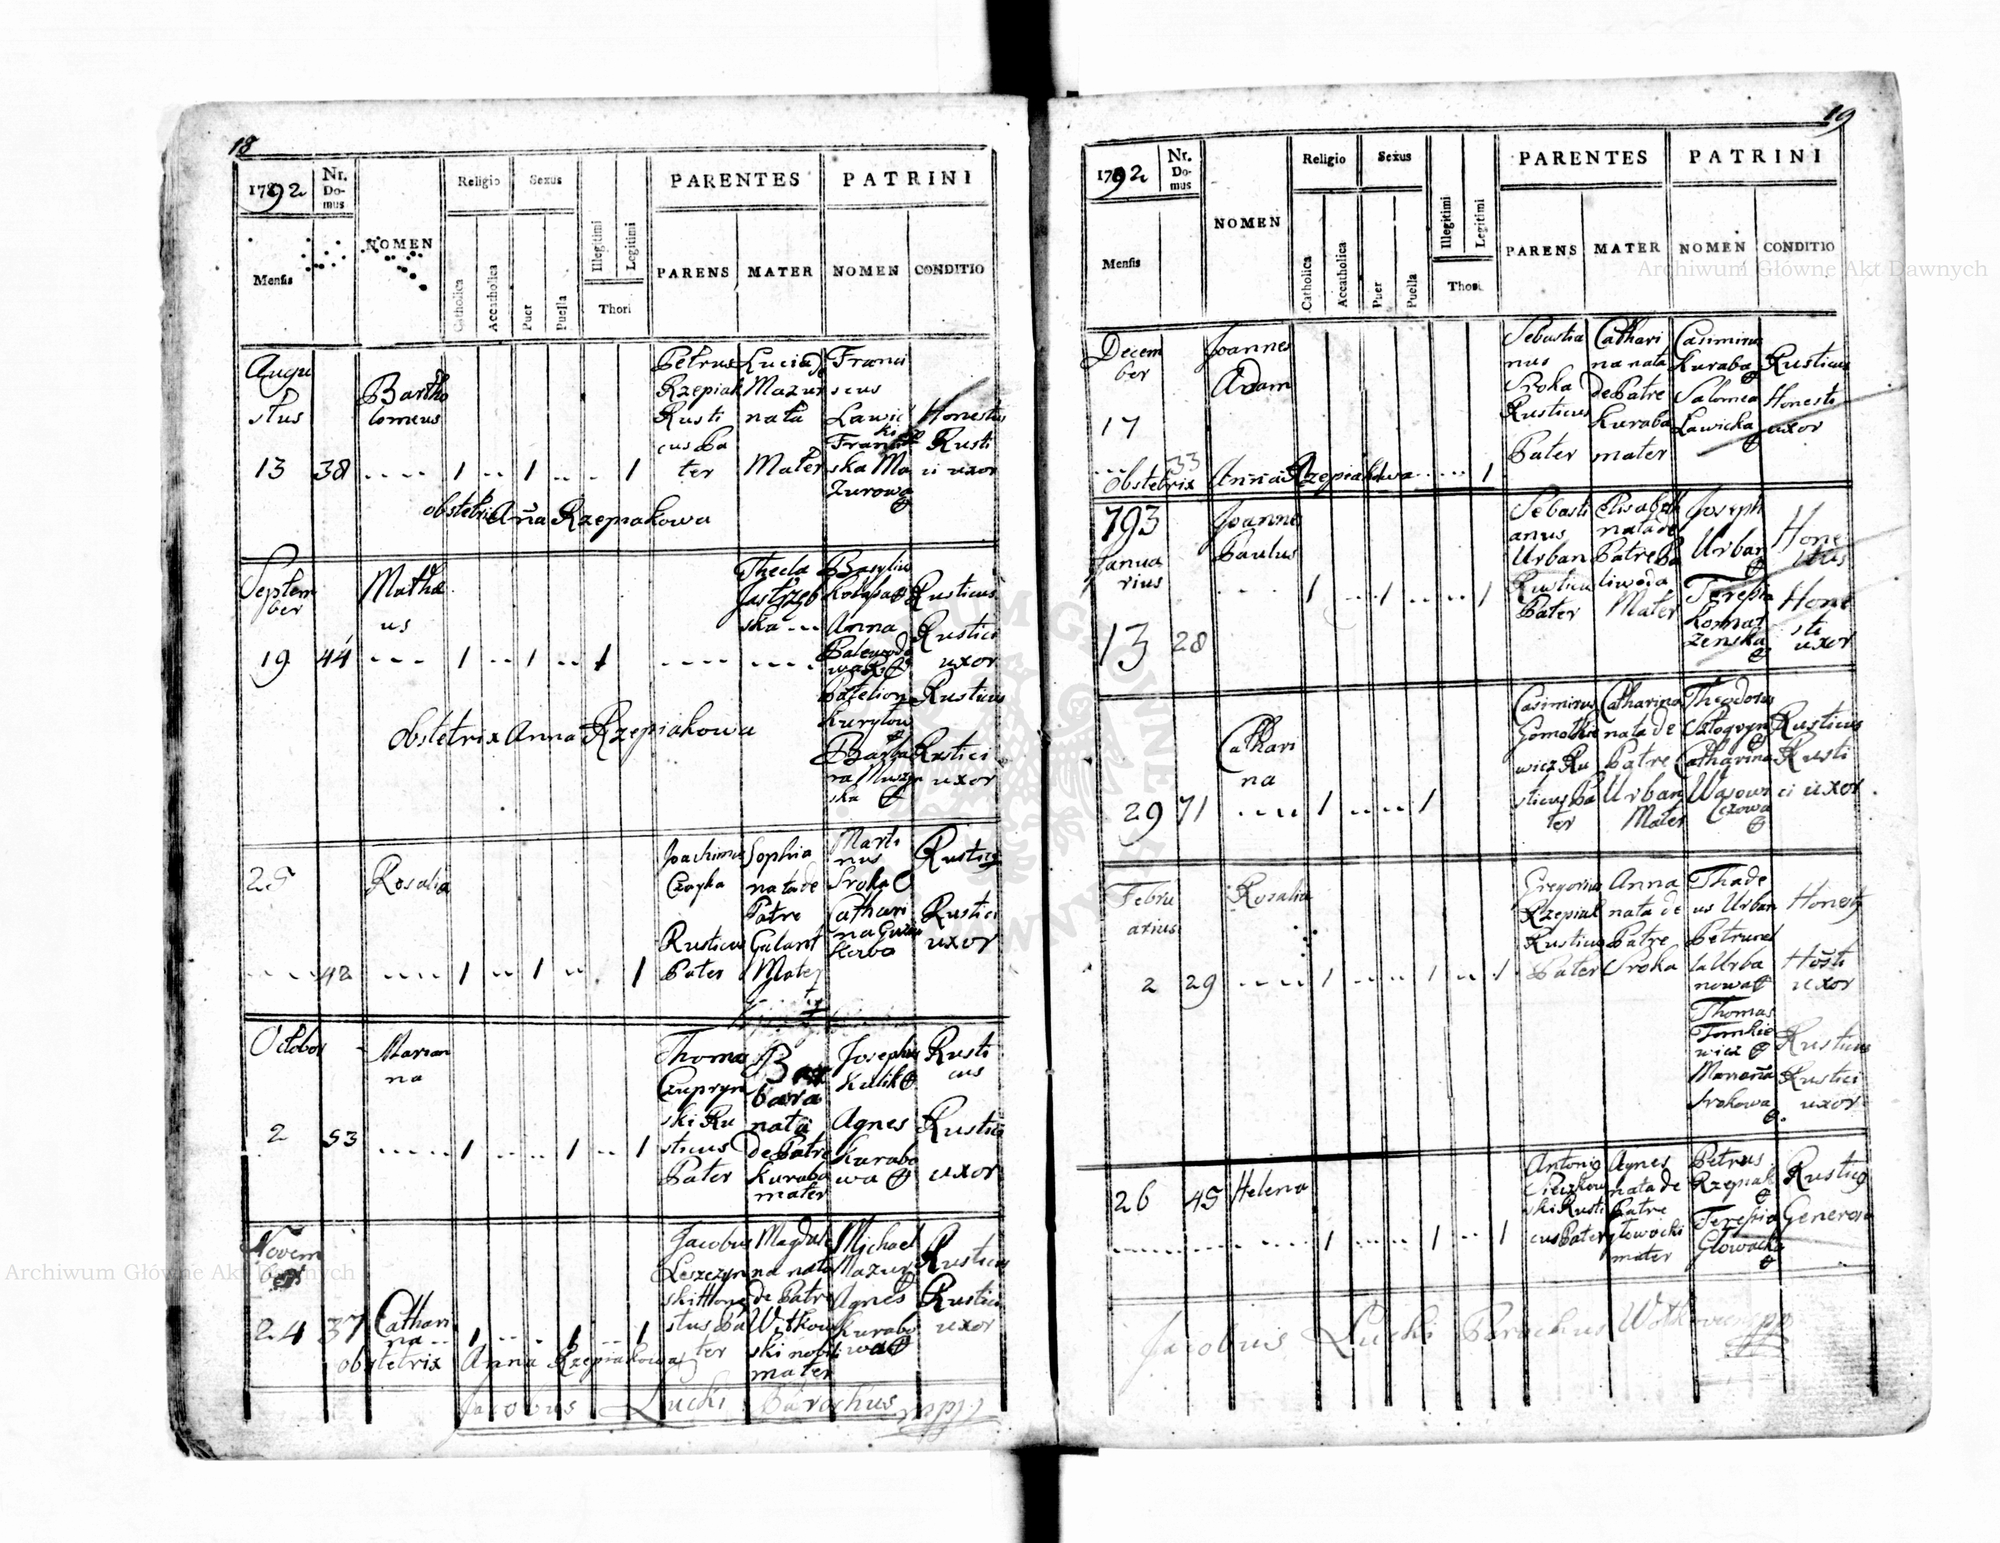 18
1792
Nr. Do- mus
NOMEN
Religio
Sexus
PARENTES
PATRINI
Mensis
Catholica
Accatholica
Puer
Puella
Illegitimi
Legitimi
Thori
PARENS
MATER
NOMEN
CONDITIO
Augu
stus
13
38
Bartho
lomeus
Petrus
Rzepiak
Rusti
cus Pa
ter
Lucia de
Mazur
nata
Mater
Franci
scus
Lawic
ki
Franci
ska Ma
zurowa
Honestus
Rusti
ci uxor
obstetrix Anna Rzepiakowa
Septem
ber
19
44
Mathe
us
Thecla
Jastrzęb
ska
Basylius
Anna
Rusticus
Rustici
uxor
Kuryłow
Rusticus
Barba
ra Muszyn
ska
Rustici
uxor
Obstetrix Anna Rzepiakowa
25
42
Rosalia
Joachimus
Czayka
Rusticus
Pater
Sophia
nata de
Patre
Galant
Mater
Marti
nus
Sroka
Cathari
na
Rusticus
Rustici
uxor
October
2
53
Marian
na
Thoma
Czupryn
ski Ru
sticus
Pater
Bar
bara
nata
de Patre
Kuraba
mater
Josephus
Kulik
Agnes
Kurabo
wa
Rusti
cus
Rustici
uxor
Novem
ber
24
37
Cathari
na
Jacobus
Leszczyn
ski Hone
stus Pa
ter
Magdale
na nata
de Patre
Witkow
ski nobili
mater
Michael
Mazur
Agnes
Kurabo
wa
Rusticus
Rustici
uxor
obstetrix Anna Rzepiakowa
Jacobus Łucki Parochus mpp
19
1792
Nr. Do- mus
NOMEN
Religio
Sexus
PARENTES
PATRINI
Mensis
Catholica
Accatholica
Puer
Puella
Illegitimi
Legitimi
Thori
PARENS
MATER
NOMEN
CONDITIO
Decem
ber
17
33
Joannes
Adam
Sebastia
nus
Sroka
Rusticus
Pater
Cathari
na nata
de Patre
Kuraba
mater
Casimirus
Kuraba
Salomea
Lawicka
Rusticus
Honesti
uxor
Obstetrix Anna Rzepiakowa
793
Janua
rius
13
28
Joannes
Paulus
Sebasti
anus
Urban
Rusticus
Pater
Elisabeth
nata de
Patre Pa
liwoda
Mater
Joseph
Urban
Teressia
Kornat
zenska
Hone
stus
Hone
sti
uxor
29
71
Cathari
na
Casimirus
Gomołke
wicz Ru
sticus Pa
ter
Catharina
nata de
Patre
Urban
Mater
Theodorus
Catharina
Wąsowi
czowa
Rusticus
Rusti
ci uxor
Febru
arius
2
29
Rosalia
Gregorius
Rzepiak
Rusticus
Pater
Anna
nata de
Patre
Sroka
Thade
us Urban
Petrunel
la Urba
nowa
Thomas
Tomkie
wicz
Marianna
Srokowa
Honesty
Hosti
uxor
Rusticus
Rustici
uxor
26
45
Helena
Antonig
Pieczkow
ski Rusti
cus Pater
Agnes
nata de
Patre
Głowacki
mater
Petrus
Rzepiak
Teressia
Głowacka
Rusticg
Generosa
Jacobus Łucki Parochus mpp
Archiwum Główne Akt Dawnych
Archiwum Główne Akt Dawnych